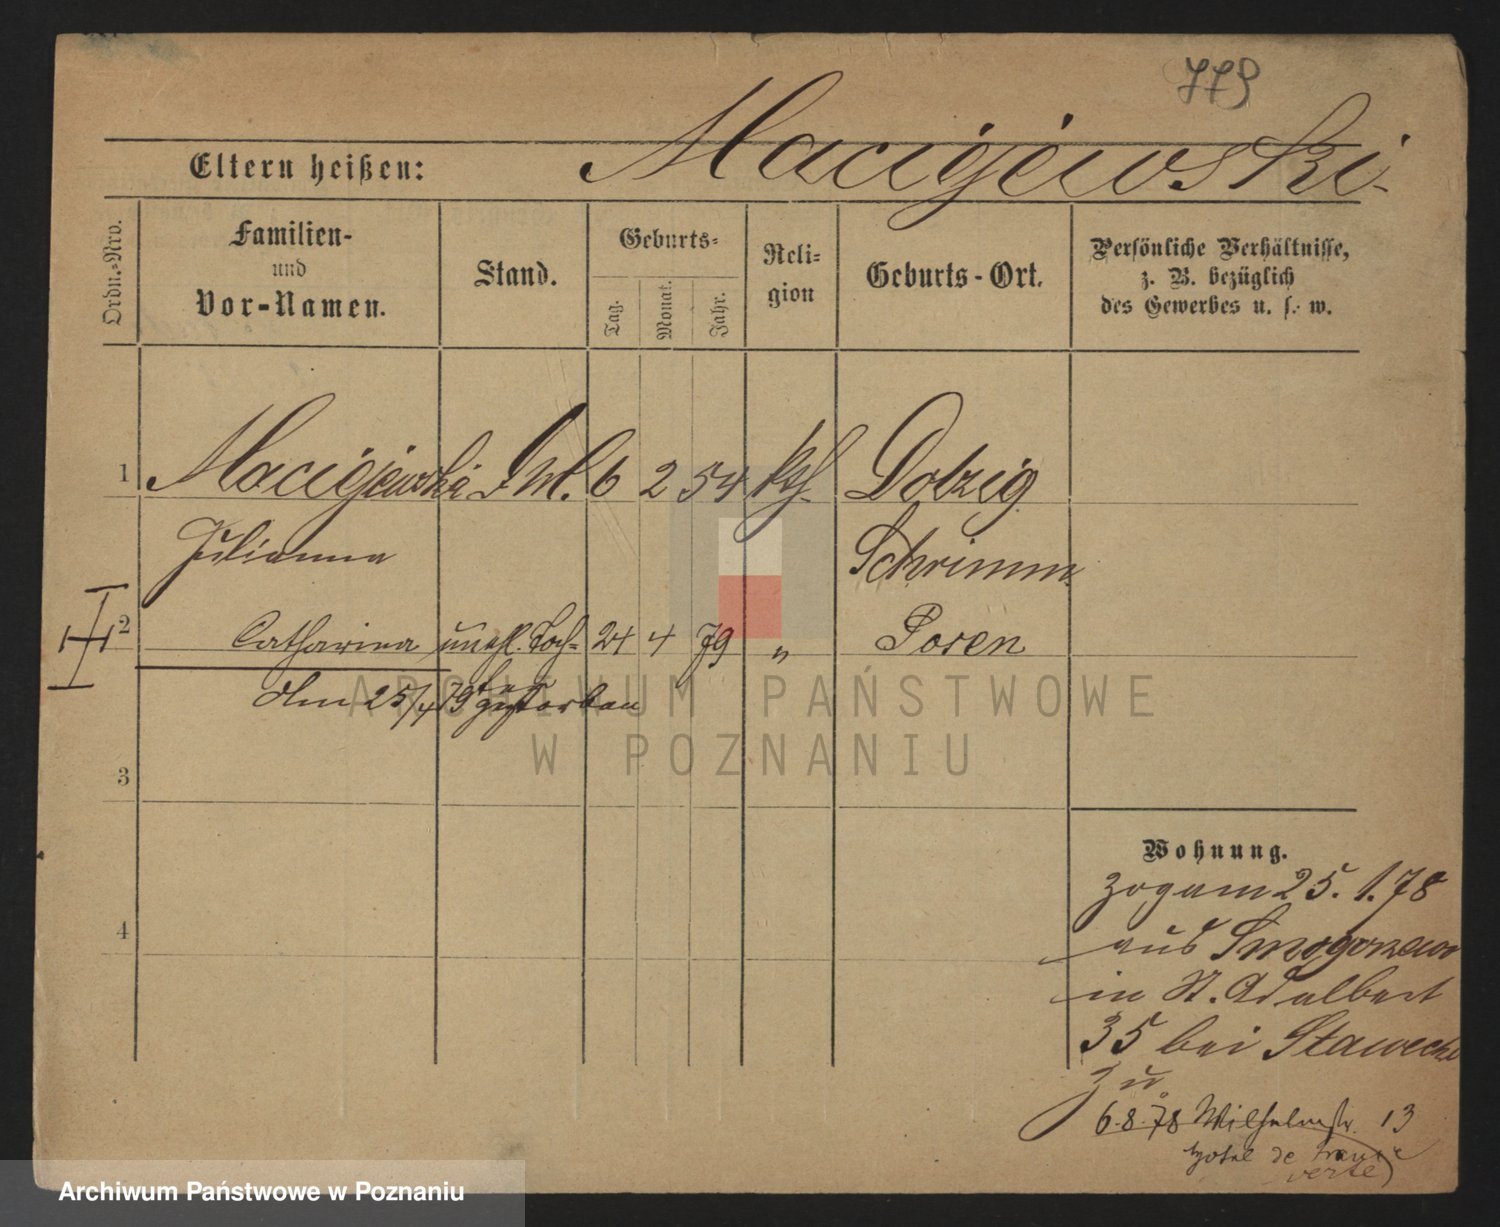 779
Eltern heißen: Macijewski
Ordn.-Nro.
Familien-
und
Vor-Namen.
Stand.
Geburts-
Tag.
Monat.
Jahr.
Reli-
gion
Geburts-Ort.
Persönliche Verhältnisse,
z. B. bezüglich
des Gewerbes u. s. w.
1 Macijewska 6 2 54 kth. Dolzig
Julianna Schrimm
2 Catharina unehl. Toch- 24 4 79 " Posen
ter
Am 25/4 79 gestorben
3
4
Wohnung.
zog am 25. 1. 78
aus Smogorzewo
in St. Adalbert
35 bei Stawecki
zu.
6.8.78 Wilhelmstr. 13
Hotel de
verte
ARCHIWUM PAŃSTWOWE
W POZNANIU
Archiwum Państwowe w Poznaniu